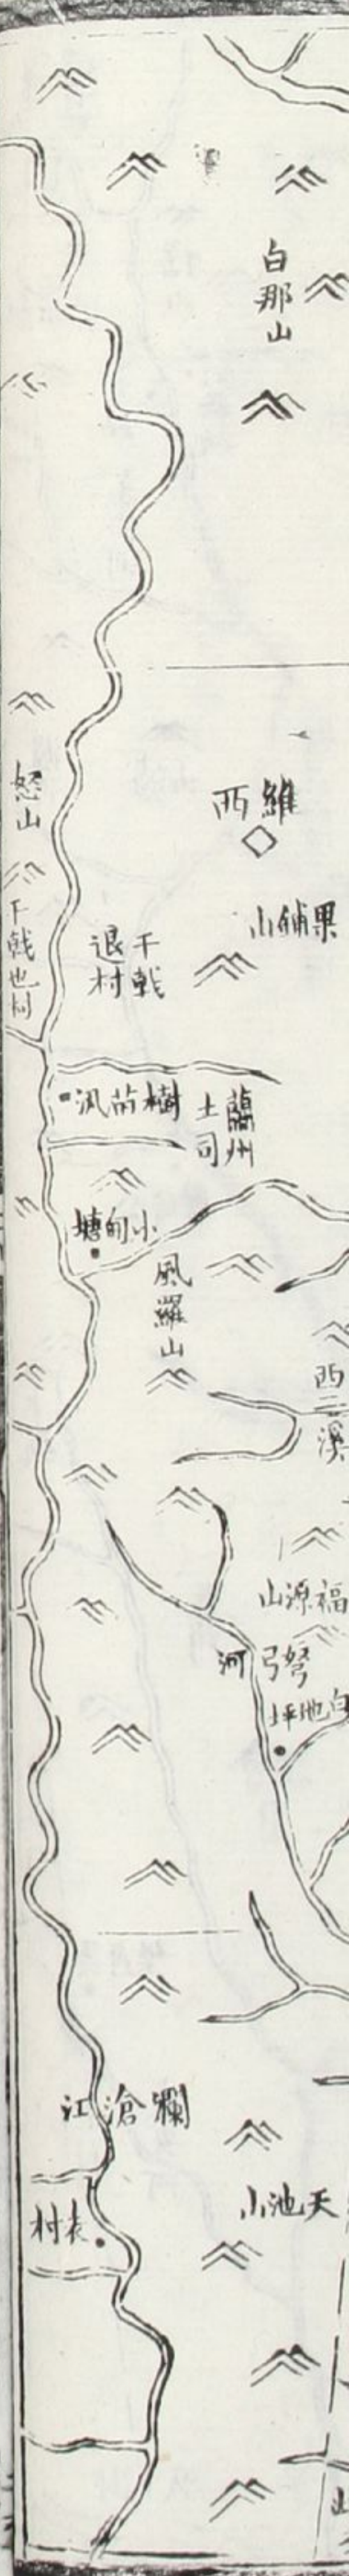 白那山
維西
怒山
果鋪山
干戟退村
干戟也村
樹苗汛
蘭州土司
小甸塘
風羅山
西溪
福源山
弩弓河
白地坪
瀾滄江
天池山
表村
山